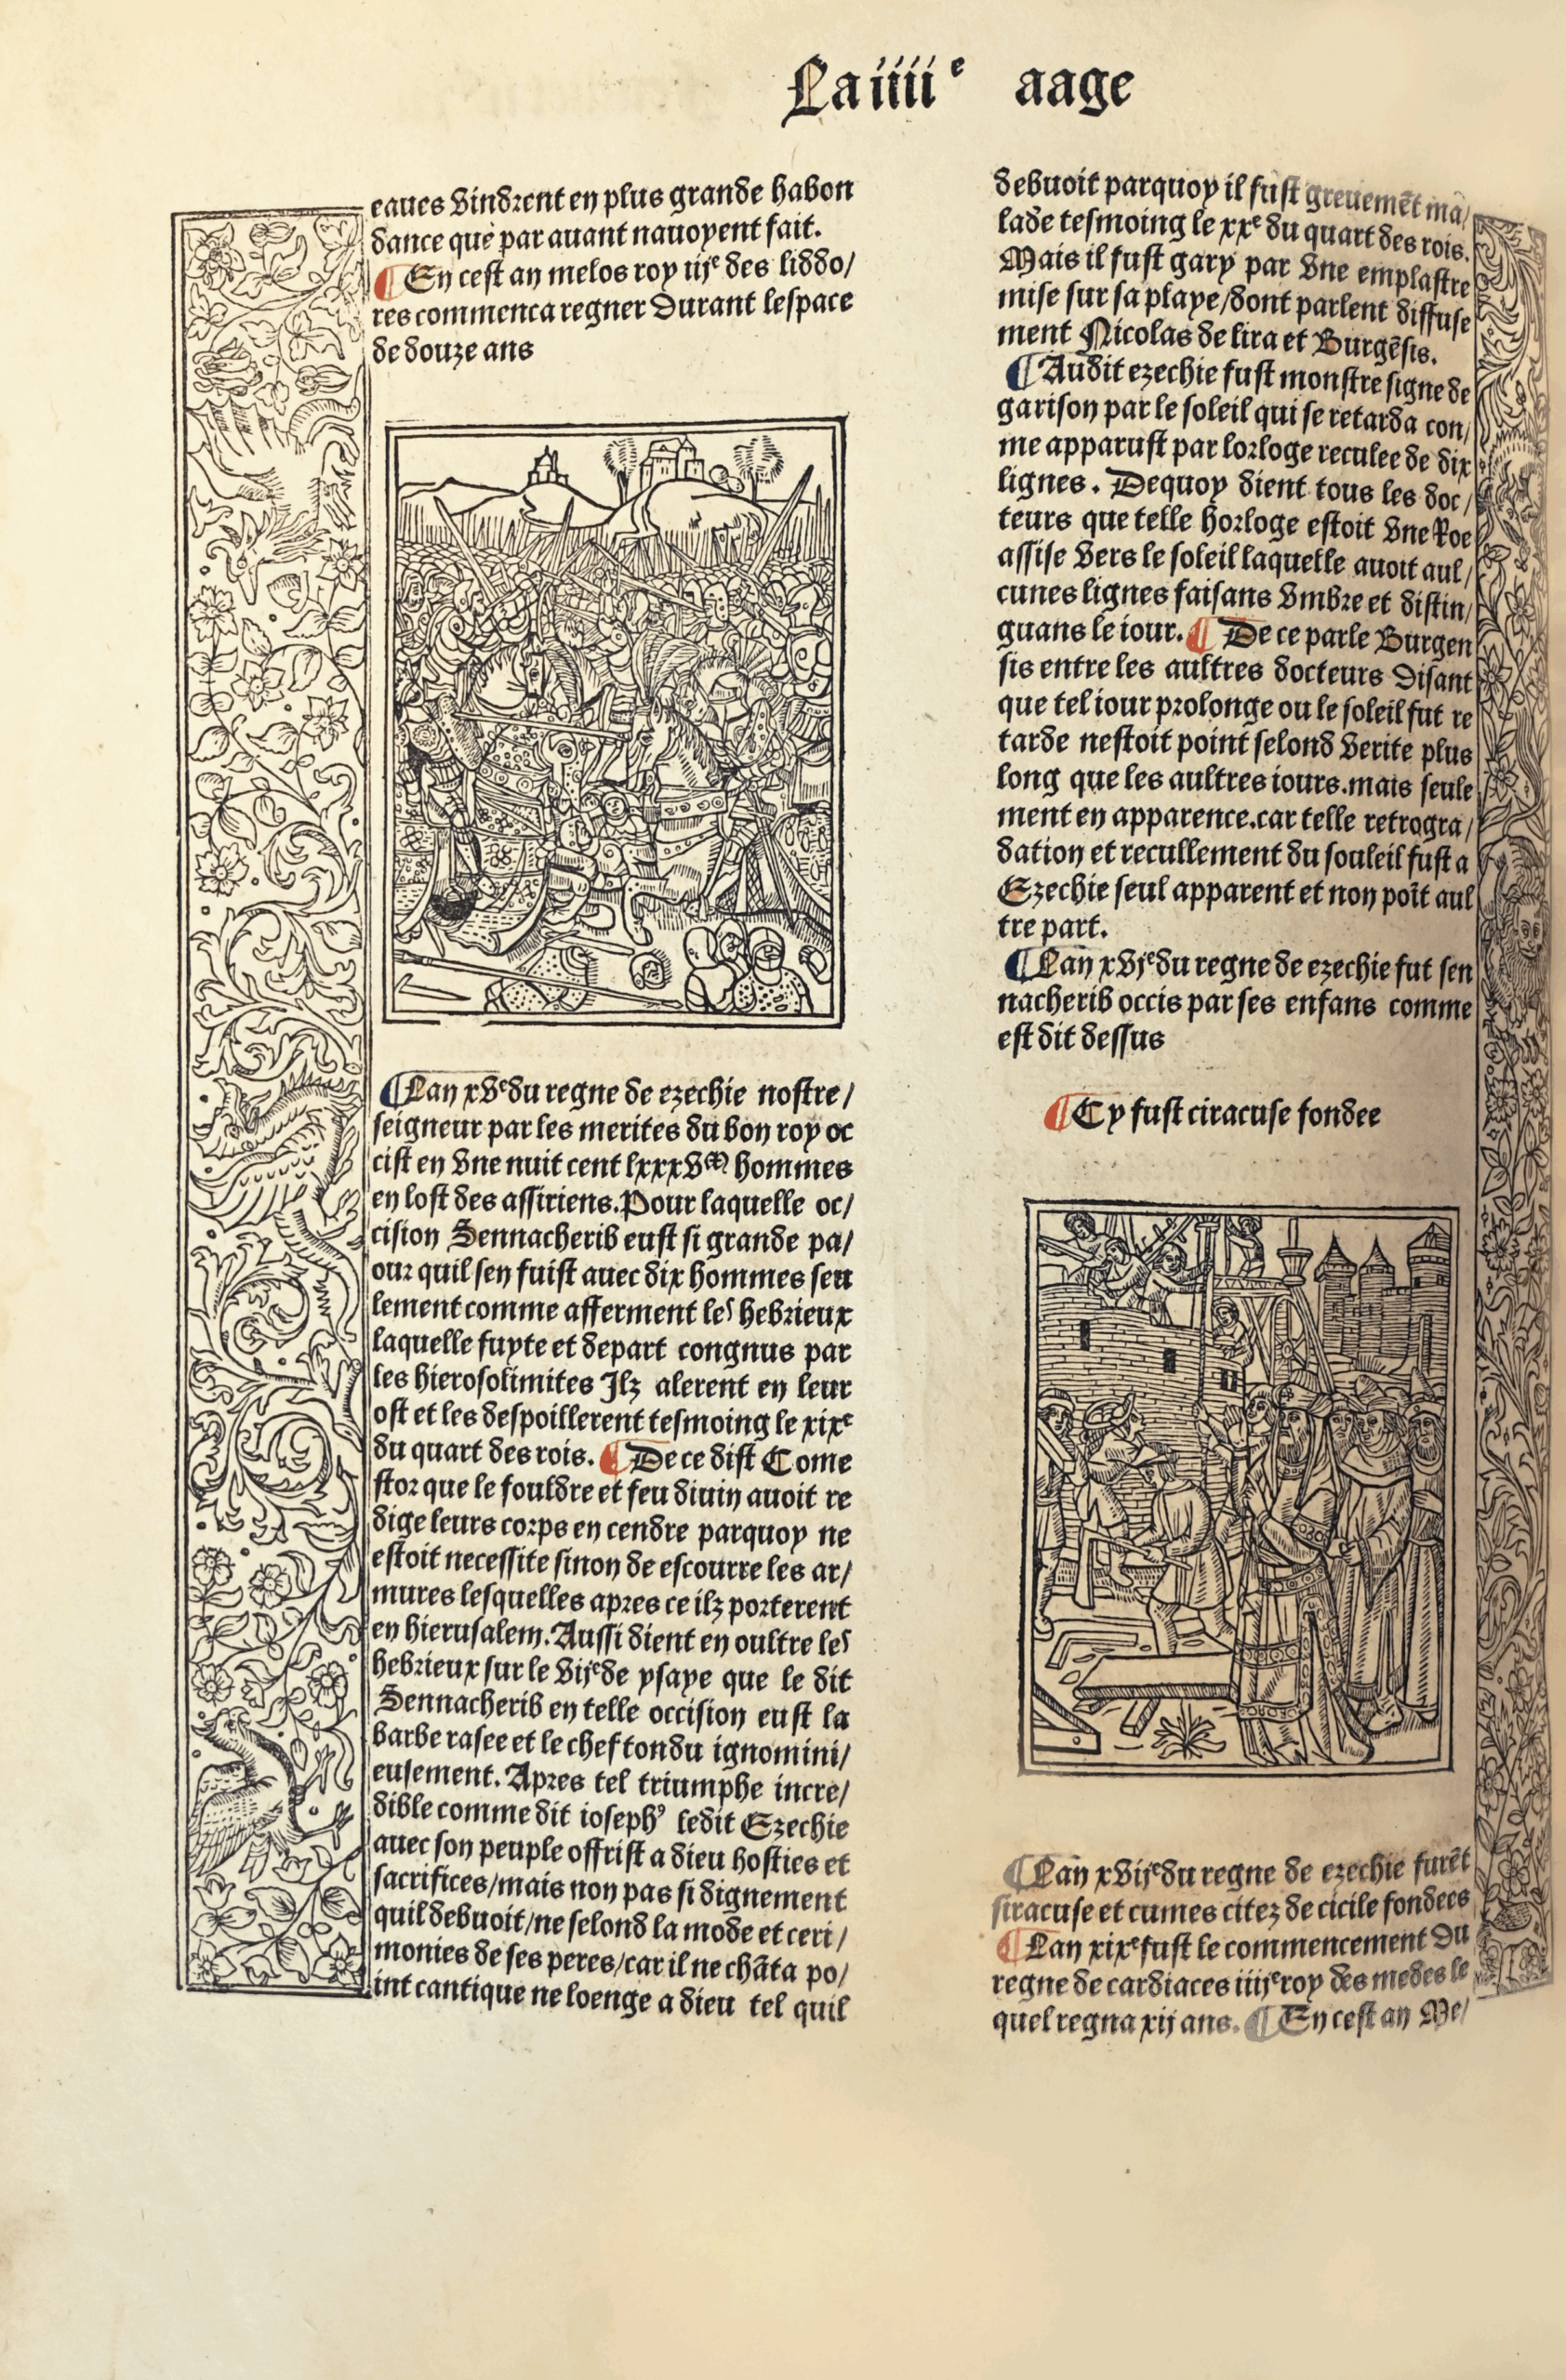 La iiii^e aage
eaues vindrent en plus grande habon
dance que par auant nauoyent fait.
¶ En cest an melos roy iij^e des liddo/
res commenca regner durant lespace
de douze ans
¶ Lan xv^e du regne de ezechie nostre/
seigneur par les merites du bon roy oc
cist en vne nuit cent lxxxv^M hommes
en lost des assiriens. Pour laquelle oc/
cision Sennacherib eust si grande pa/
our quil sen fuist auec dix hommes seu
lement comme afferment les hebrieux
laquelle fuyte et depart congnus par
les hierosolimites Ilz alerent en leur
ost et les despoillerent tesmoing le xix^e
du quart des rois. ¶ De ce dist Come
stor que le fouldre et feu diuin auoit re
dige leurs corps en cendre parquoy ne
estoit necessite sinon de escourre les ar/
mures lesquelles apres ce ilz porterent
en hierusalem. Aussi dient en oultre les
hebrieux sur le vij^e de ysaye que le dit
Sennacherib en telle occision eust la
barbe rasee et le chef tondu ignomini/
eusement. Apres tel triumphe incre/
dible comme dit iosephꝰ ledit Ezechie
auec son peuple offrist a dieu hosties et
sacrifices/mais non pas si dignement
quil debuoit/ne selond la mode et ceri/
monies de ses peres/car il ne chāta po/
int cantique ne loenge a dieu tel quil
debuoit parquoy il fust greuemēt ma/
lade tesmoing le xx^e du quart des rois.
Mais il fust gary par vne emplastre
mise sur sa playe/dont parlent diffuse
ment Nicolas de lira et Burgēsis.
¶ Audit ezechie fust monstre signe de
garison par le soleil qui se retarda con/
me apparust par lorloge reculee de dix
lignes. Dequoy dient tous les doc/
teurs que telle horloge estoit vne Roe
assise vers le soleil laquelle auoit aul/
cunes lignes faisans vmbre et distin/
guans le iour. ¶ De ce parle Burgen
sis entre les aultres docteurs disant
que tel iour prolonge ou le soleil fut re
tarde nestoit point selond verite plus
long que les aultres iours.mais seule
ment en apparence.car telle retrogra/
dation et recullement du souleil fust a
Ezechie seul apparent et non poīt aul
tre part.
¶ Lan xvj^e du regne de ezechie fut sen
nacherib occis par ses enfans comme
est dit dessus
¶ Cy fust ciracuse fondee
¶ Lan xvij^e du regne de ezechie furēt
siracuse et cumes citez de cicile fondees
¶ Lan xix^e fust le commencement du
regne de cardiaces iiij^e roy des medes le
quel regna xij ans. ¶ En cest an Me/